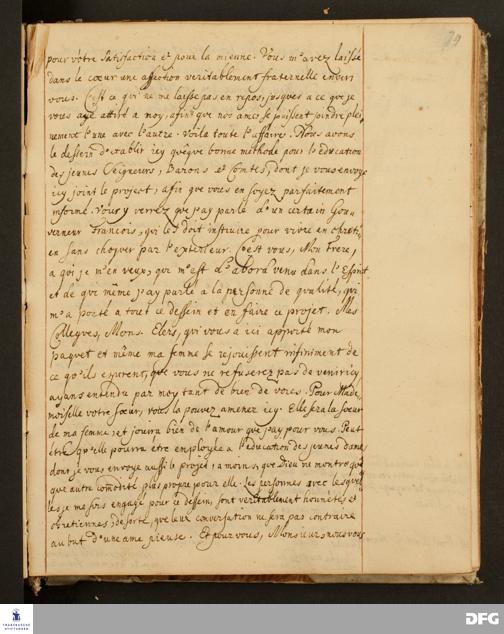 79
pour vôtre satisfaction et pour la mienne. Vous m'avez laissé
dans le cœur une affection veritablement fraternelle envers
vous. C'est ce qui ne me laisse pas en repos, jusques a ce que je
vous aye attiré a moy, afin que nos ames se puissent joindre plei
nement l'une avec l'autre. Voila toute l'affaire. Nous avons
le dessein d'etablir icy quêque bonne méthode pour l'education
des jeunes Seigneurs, Barons et Comtes, dont je vous envoye
icy joint le project, afin que vous en soyez parfaitement
informé. Vous y verrez que j'ay parlé d'un certain Gou-
verneur François, qui les doit instruire pour vivre en chreti-
en sans choquer par l'exterieur. C'est vous, Mon Frere,
a qoi je m'en veux, qui m'est d'abord venu dans l'Esprit
et de qui même j'ay parlé a la personne de qualité, qui
m'a porté a tout ce dessein et en faire ce project. Mes
Collegues, Mons. Elers, qui vous a ici apporté mon
paquet et même ma femme se rejouissent infiniment de
ce qu'ils esperent, que vous ne refuserez pas de venir icy
ayans entendu par moy tant de bien de vous. Pour Made-
moiselle votre sœur, vous la pouvez amener icy. Elle sera la sœur
de ma femme, et jouira bien de l'amour que j'ay pour vous. Peut
être qu'elle pourra être employée a l'education des jeunes dames
dont je vous envoye aussi le projet, a moins, que Dieu ne montre quel
que autre comodité plus propre pour elle. Les personnes avec lesquel
les je me suis engagé pour ce dessein, sont veritablement honnêtes et
chretiennes, desorte, que leur conversation ne sera pas contraire
au but d'une ame pieuse. Et pour vous, Monsieur, nous vous
FRANCKESCHE
STIFTUNGEN
DFG